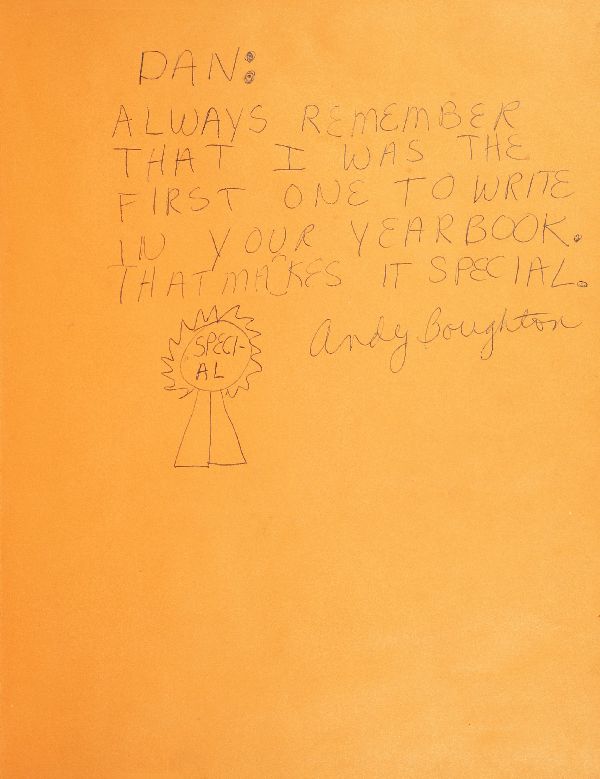 DAN:
ALWAYS REMEMBER
THAT I WAS THE
FIRST ONE TO WRITE
IN YOUR YEARBOOK.
THAT MAKES IT SPECIAL.
Andy Boughton
SPECI-
AL